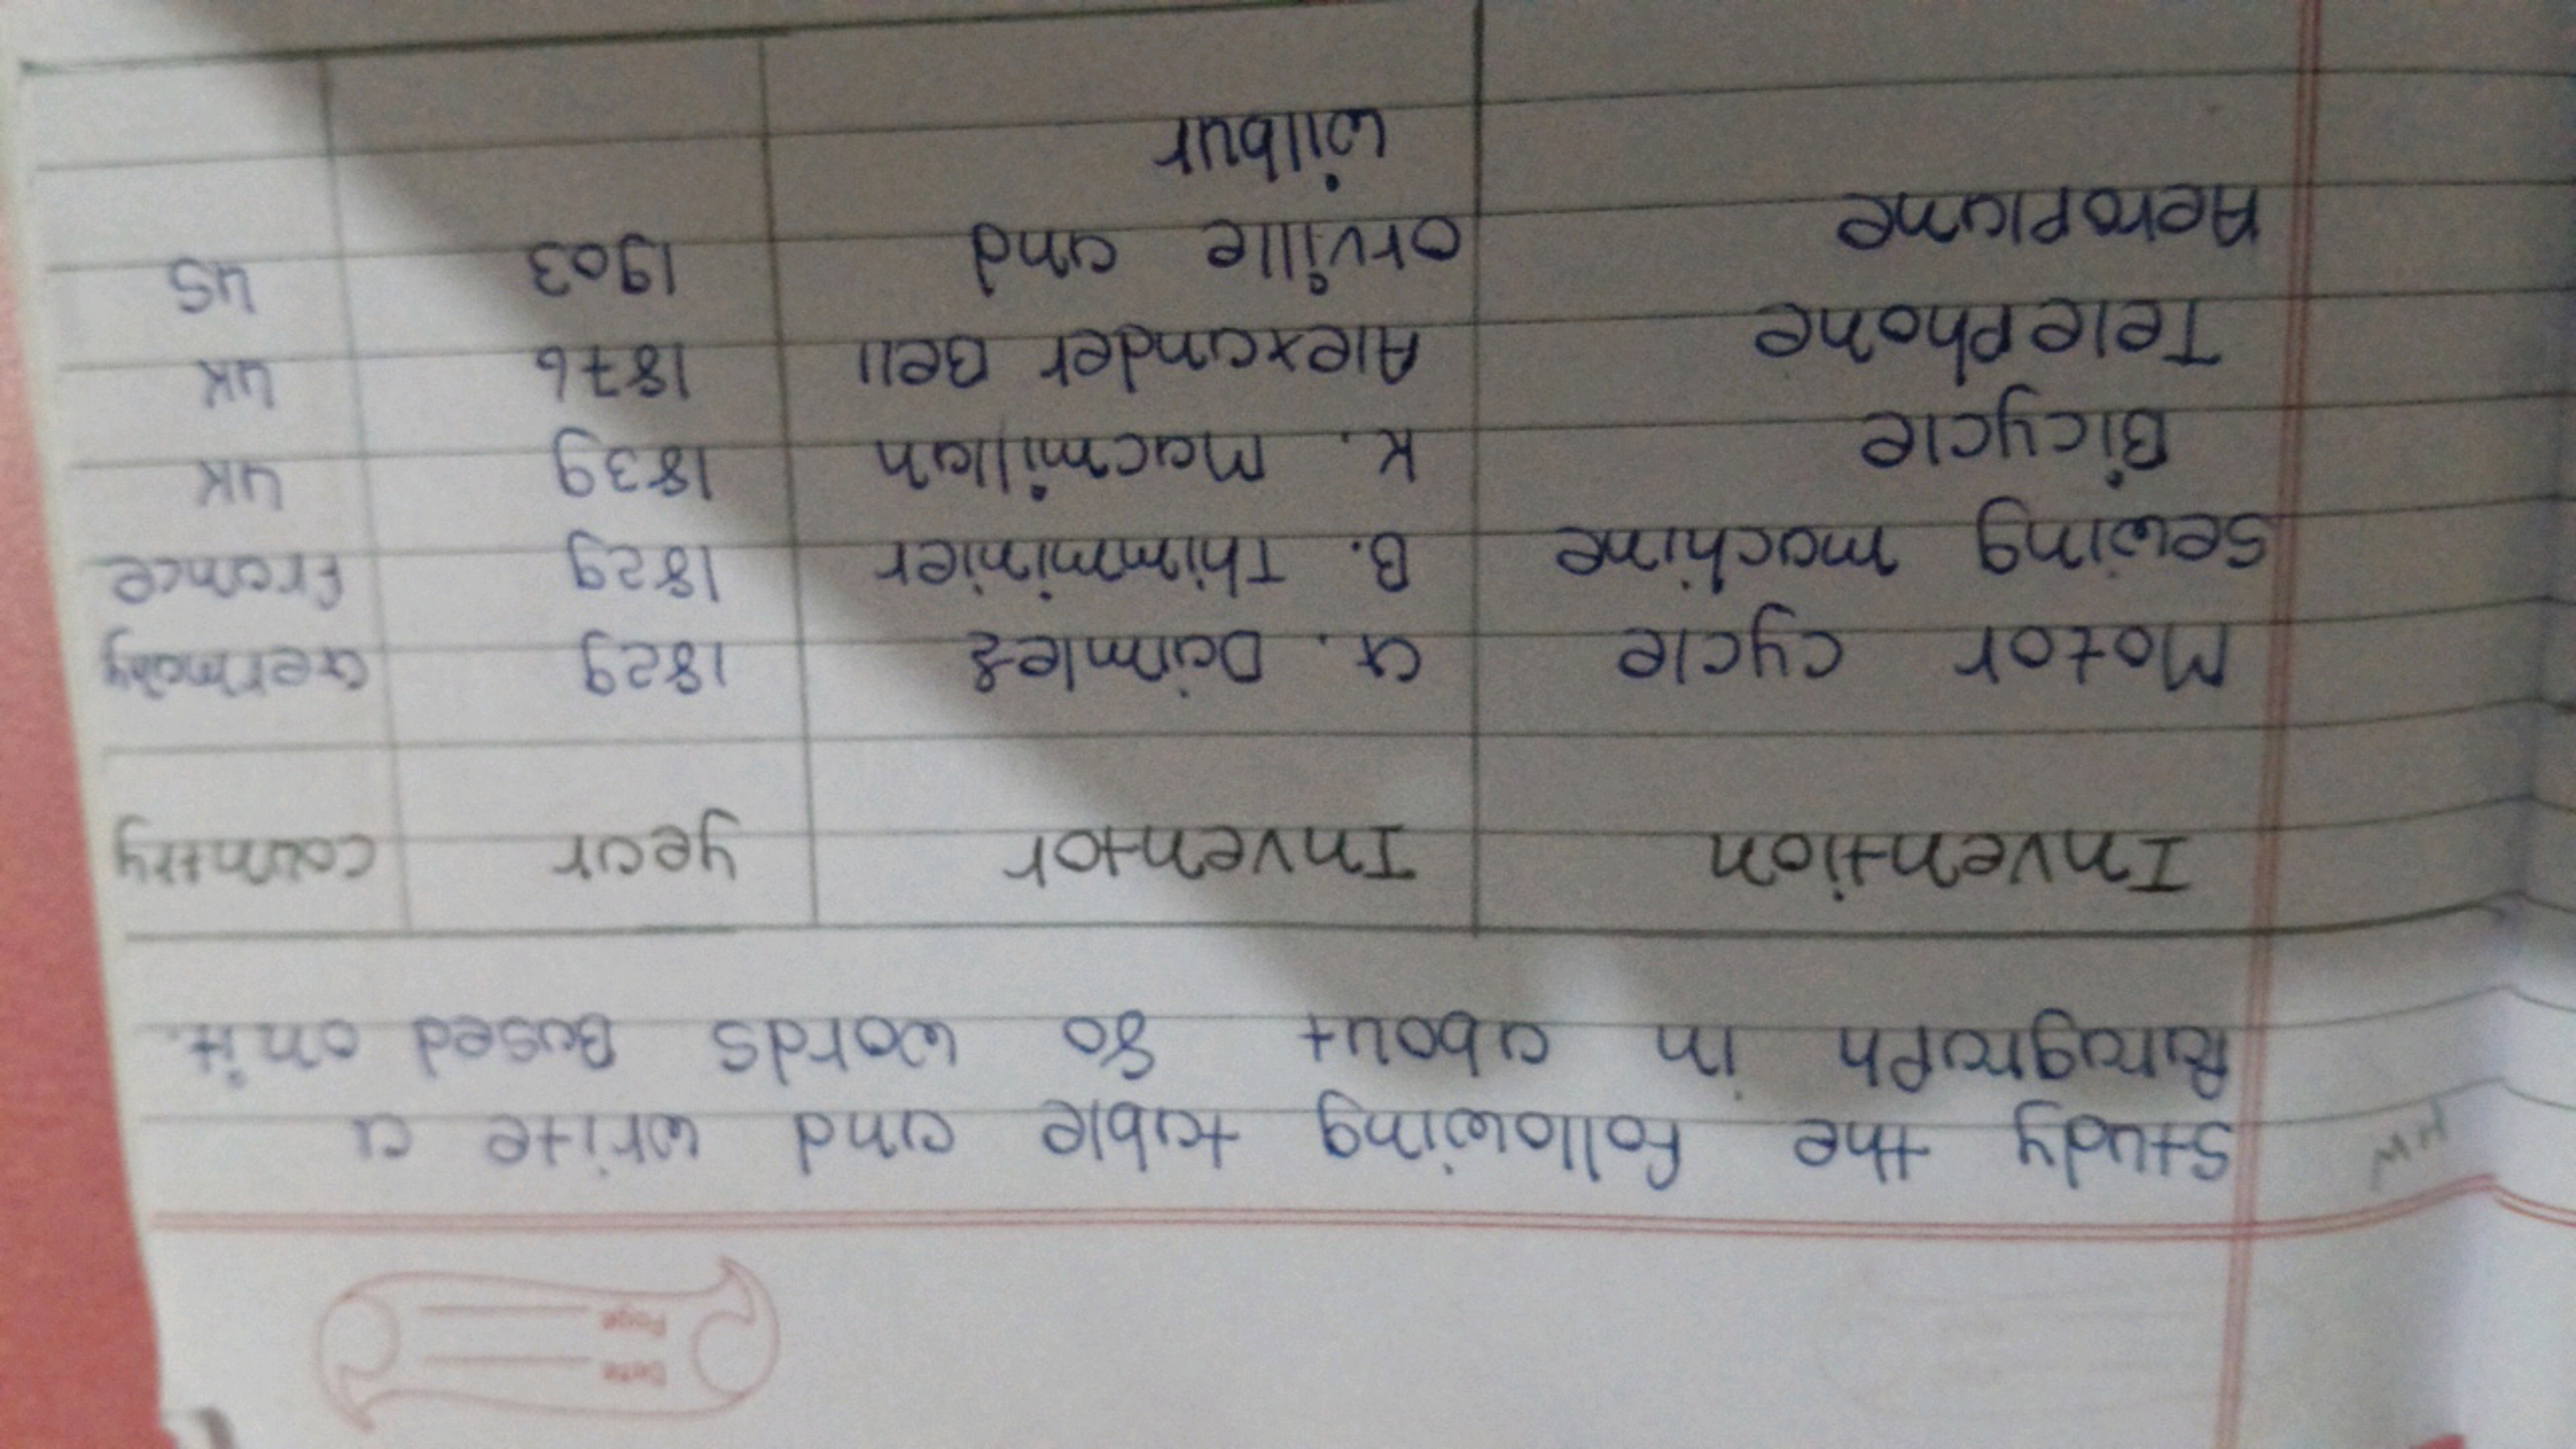 Date
Page
HW
Study the following table and write a
Paragraph in about 80 words Based on it.
Invention Inventor year country
Motor cycle G. Daimles 1829 Germany
Sewing machine B. Thimminier 1829 France
Bicycle K. Macmillan 1839 UK
Telephone Alexander Bell 1876 UK
Aeroplane orville and 1903 US
wilbur